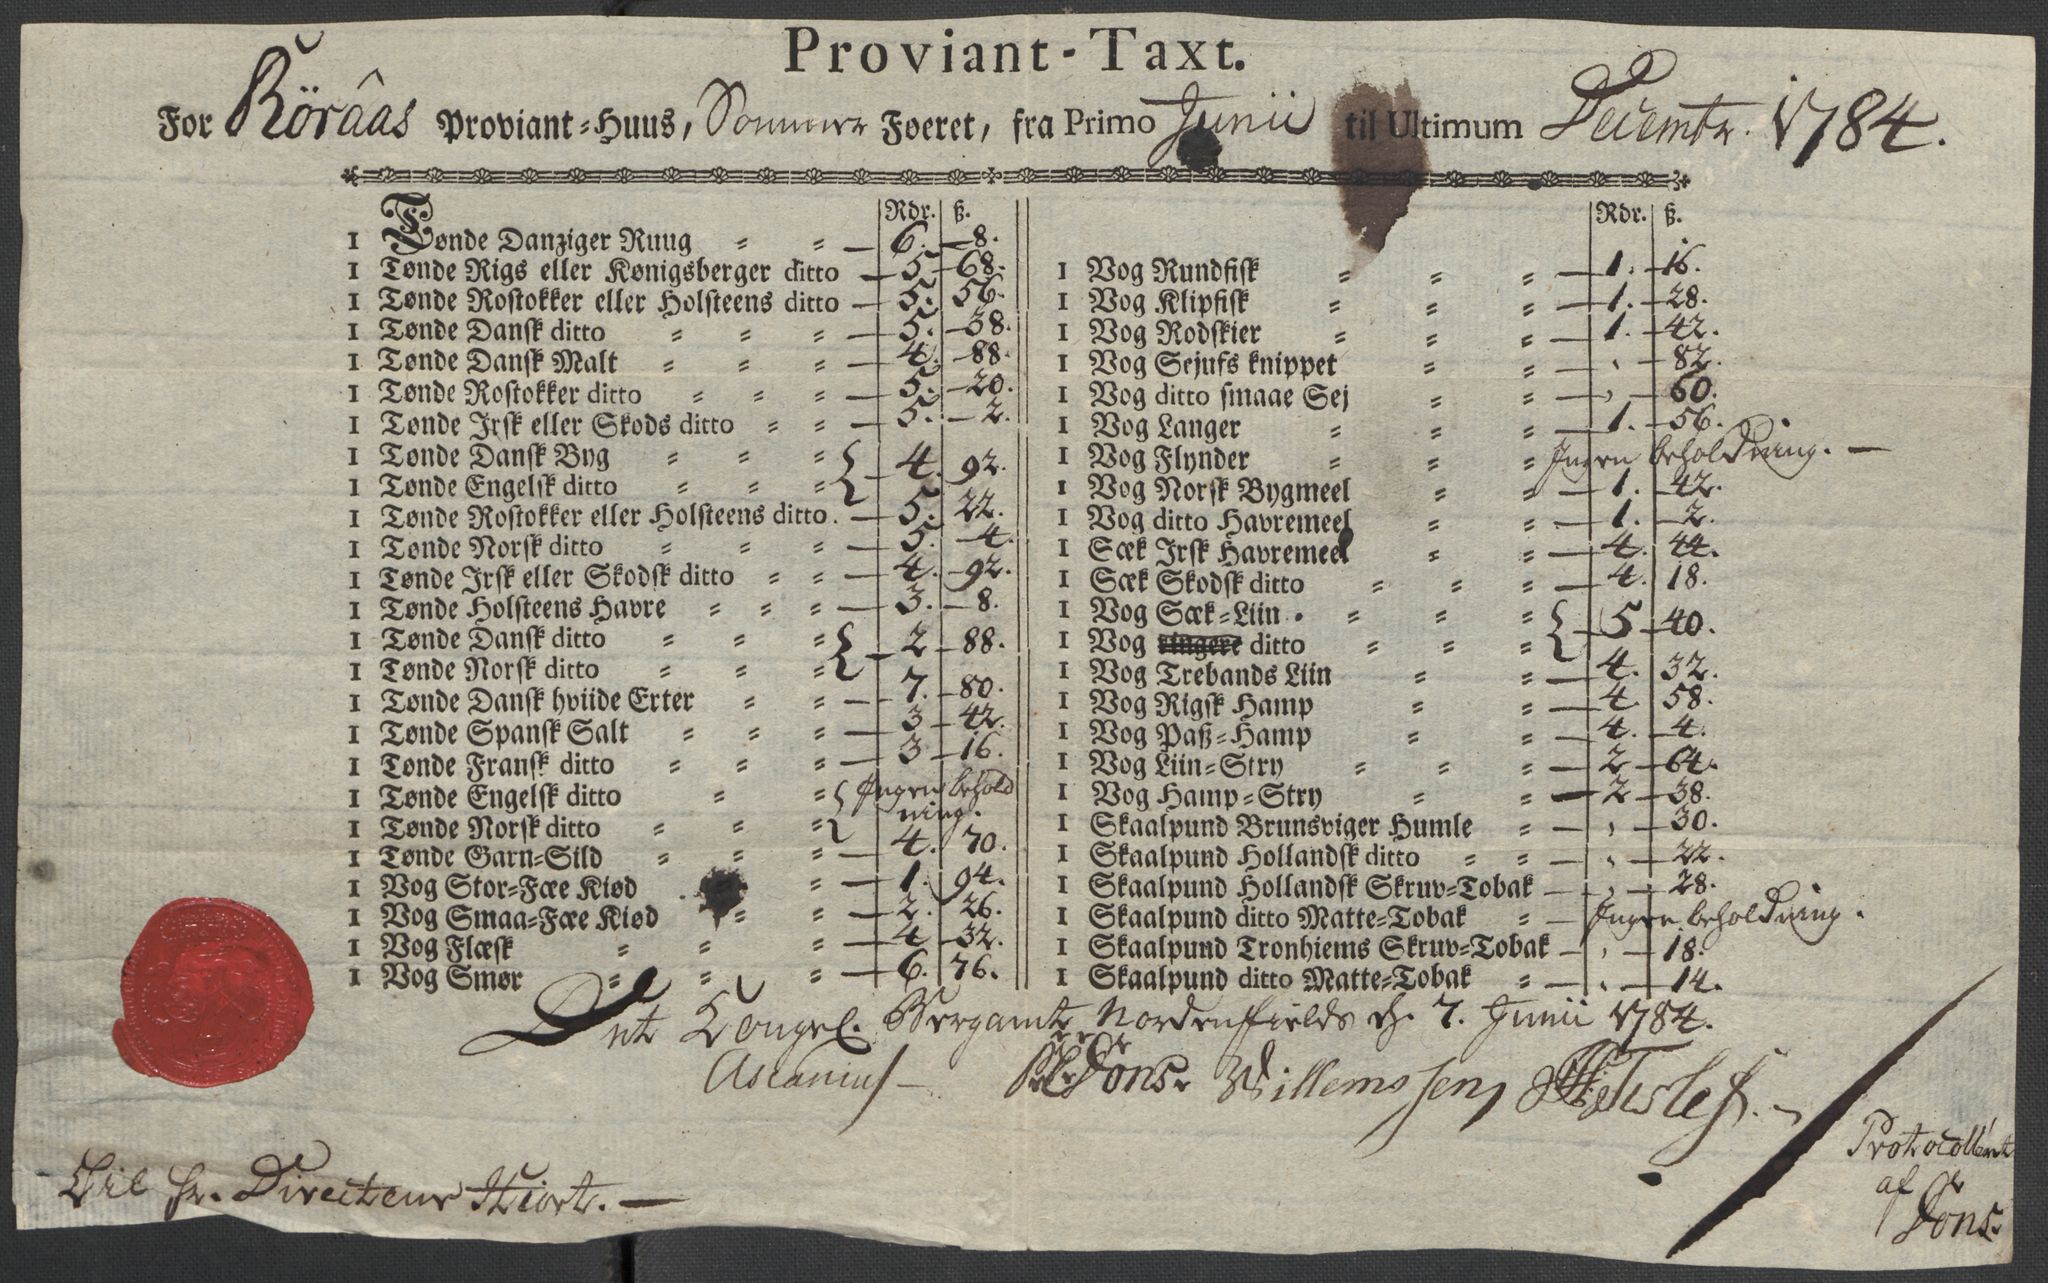 Proviant-Taxt.
For Röråas Proviant-Huus, Sommer Foeret, fra Primo Junii til Ultimum Decembr. 1784.
Rdr. ß.
1 Tønde Danziger Ruug 6. 8.
1 Tønde Rigs eller Kønigsberger ditto 5. 68.
1 Tønde Rostokker eller Holsteens ditto 5. 56.
1 Tønde Dansk ditto 5. 38.
1 Tønde Dansk Malt 4. 88.
1 Tønde Rostokker ditto 5. 20.
1 Tønde Irsk eller Skods ditto 5. 2.
1 Tønde Dansk Byg } 4. 92.
1 Tønde Engelsk ditto }
1 Tønde Rostokker eller Holsteens ditto. 5. 22.
1 Tønde Norsk ditto 5. 4.
1 Tønde Irsk eller Skodsk ditto 4. 92.
1 Tønde Holsteens Havre 3. 8.
1 Tønde Dansk ditto } 2 88.
1 Tønde Norsk ditto }
1 Tønde Dansk hviide Erter 7. 80.
1 Tønde Spansk Salt 3 42.
1 Tønde Fransk ditto 3 16.
1 Tønde Engelsk ditto } Ingen behold
1 Tønde Norsk ditto } ning.
1 Tønde Garn-Sild 4. 70.
1 Vog Stor-Fæe Kiød 1. 94.
1 Vog Smaa-Fæe Kiød 2. 26.
1 Vog Flæsk 4 32.
1 Vog Smør 6. 76.
Rdr. ß.
1 Vog Rundfisk 1. 16.
1 Vog Klipfisk 1. 28.
1 Vog Rodskier 1. 42.
1 Vog Sejufs knippet 82.
1 Vog ditto smaae Sej 60.
1 Vog Langer 1. 56.
1 Vog Flynder Ingen beholdning.
1 Vog Norsk Bygmeel 1. 42.
1 Vog ditto Havremeel 1. 2.
1 Sæk Irsk Havremeel 4. 44.
1 Sæk Skodsk ditto 4. 18.
1 Vog Sæk-Liin } 5 40.
1 Vog ringere ditto }
1 Vog Trebands Liin 4. 32.
1 Vog Rigsk Hamp 4 58.
1 Vog Paß-Hamp 4. 4.
1 Vog Liin-Stry 2 64.
1 Vog Hamp-Stry 2 38.
1 Skaalpund Brunsviger Humle 30.
1 Skaalpund Hollandsk ditto 22.
1 Skaalpund Hollandsk Skruv-Tobak 28.
1 Skaalpund ditto Matte-Tobak Ingen beholdning.
1 Skaalpund Tronhiems Skruv-Tobak 18.
1 Skaalpund ditto Matte-Tobak 14.
Det Kongel. Bergamt Nordenfields d. 7. Junii 1784.
Ascanius Dons. Willemssen
Protocolleret
af
Dons.
Til Hr. Directeur Hiort.